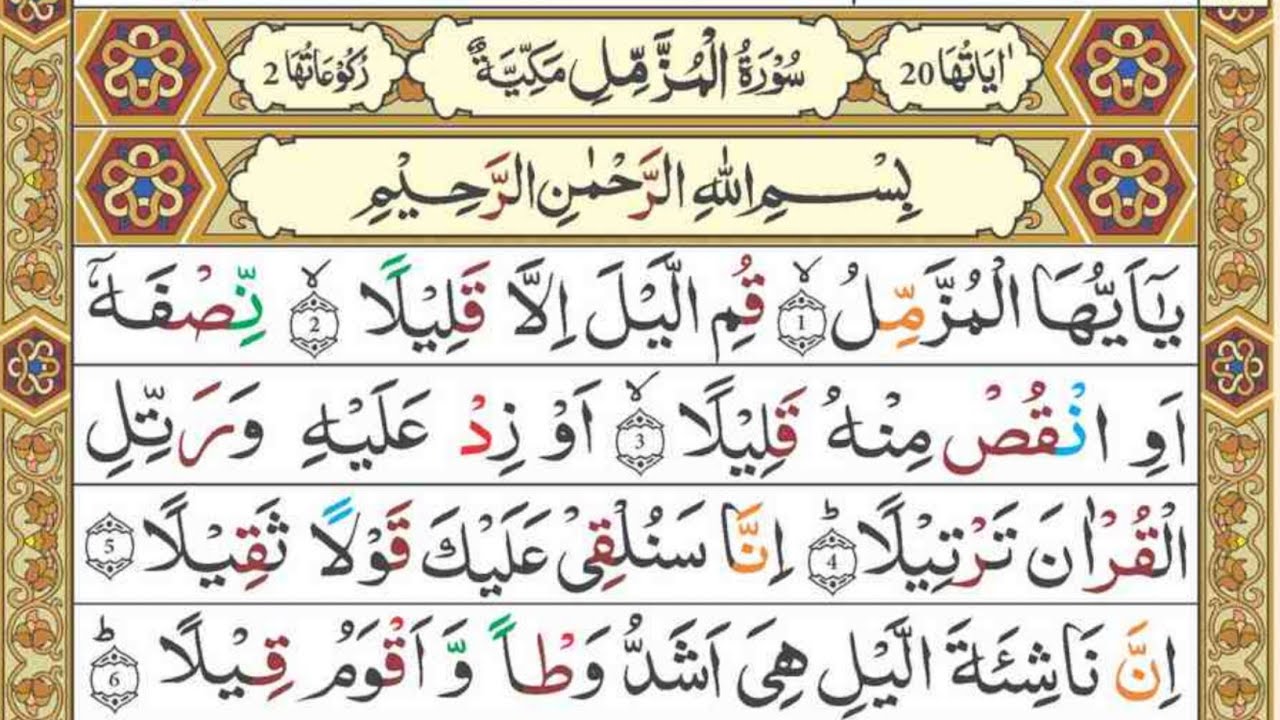 اٰيَاتُهَا 20 سُوْرَةُ الْمُزَّمِّلِ مَكِّيَّةٌ رُكُوْعَاتُهَا 2
بِسْمِ اللهِ الرَّحْمٰنِ الرَّحِيْمِ
يٰۤاَيُّهَا الْمُزَّمِّلُ ۙ 1 قُمِ الَّيْلَ اِلَّا قَلِيْلًا ۙ 2 نِّصْفَهٗۤ
اَوِ انْقُصْ مِنْهُ قَلِيْلًا ۙ 3 اَوْ زِدْ عَلَيْهِ وَرَتِّلِ
الْقُرْاٰنَ تَرْتِيْلًا ؕ 4 اِنَّا سَنُلْقِيْ عَلَيْكَ قَوْلًا ثَقِيْلًا 5
اِنَّ نَاشِئَةَ الَّيْلِ هِيَ اَشَدُّ وَطْاً وَّ اَقْوَمُ قِيْلًا ؕ 6